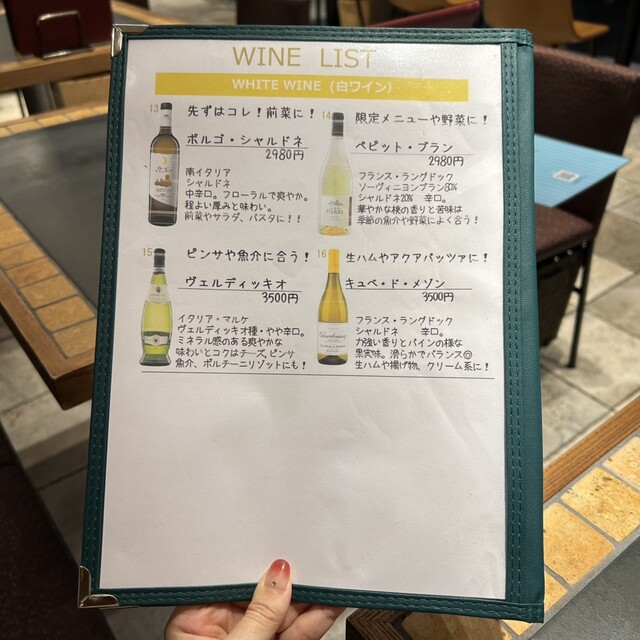 WINE LIST
WHITE WINE (白ワイン)
13 先ずはコレ！前菜に！
ボルゴ・シャルドネ
2980円
南イタリア
シャルドネ
中辛口。フローラルで爽やか。
程よい厚みと味わい。
前菜やサラダ、パスタに！！
14 限定メニューや野菜に！
ペピット・ブラン
2980円
フランス・ラングドック
ソーヴィニヨンブラン80%
シャルドネ20% 辛口。
華やかな桃の香りと苦味は
季節の魚介や野菜によく合う！
15 ピンサや魚介に合う！
ヴェルディッキオ
3500円
イタリア・マルケ
ヴェルディッキオ種・やや辛口。
ミネラル感のある爽やかな
味わいとコクはチーズ、ピンサ
魚介、ポルチーニリゾットにも！
16 生ハムやアクアパッツァに！
キュベ・ド・メゾン
3500円
フランス・ラングドック
シャルドネ 辛口。
力強い香りとパインの様な
果実味。滑らかでバランス◎
生ハムや揚げ物、クリーム系に！